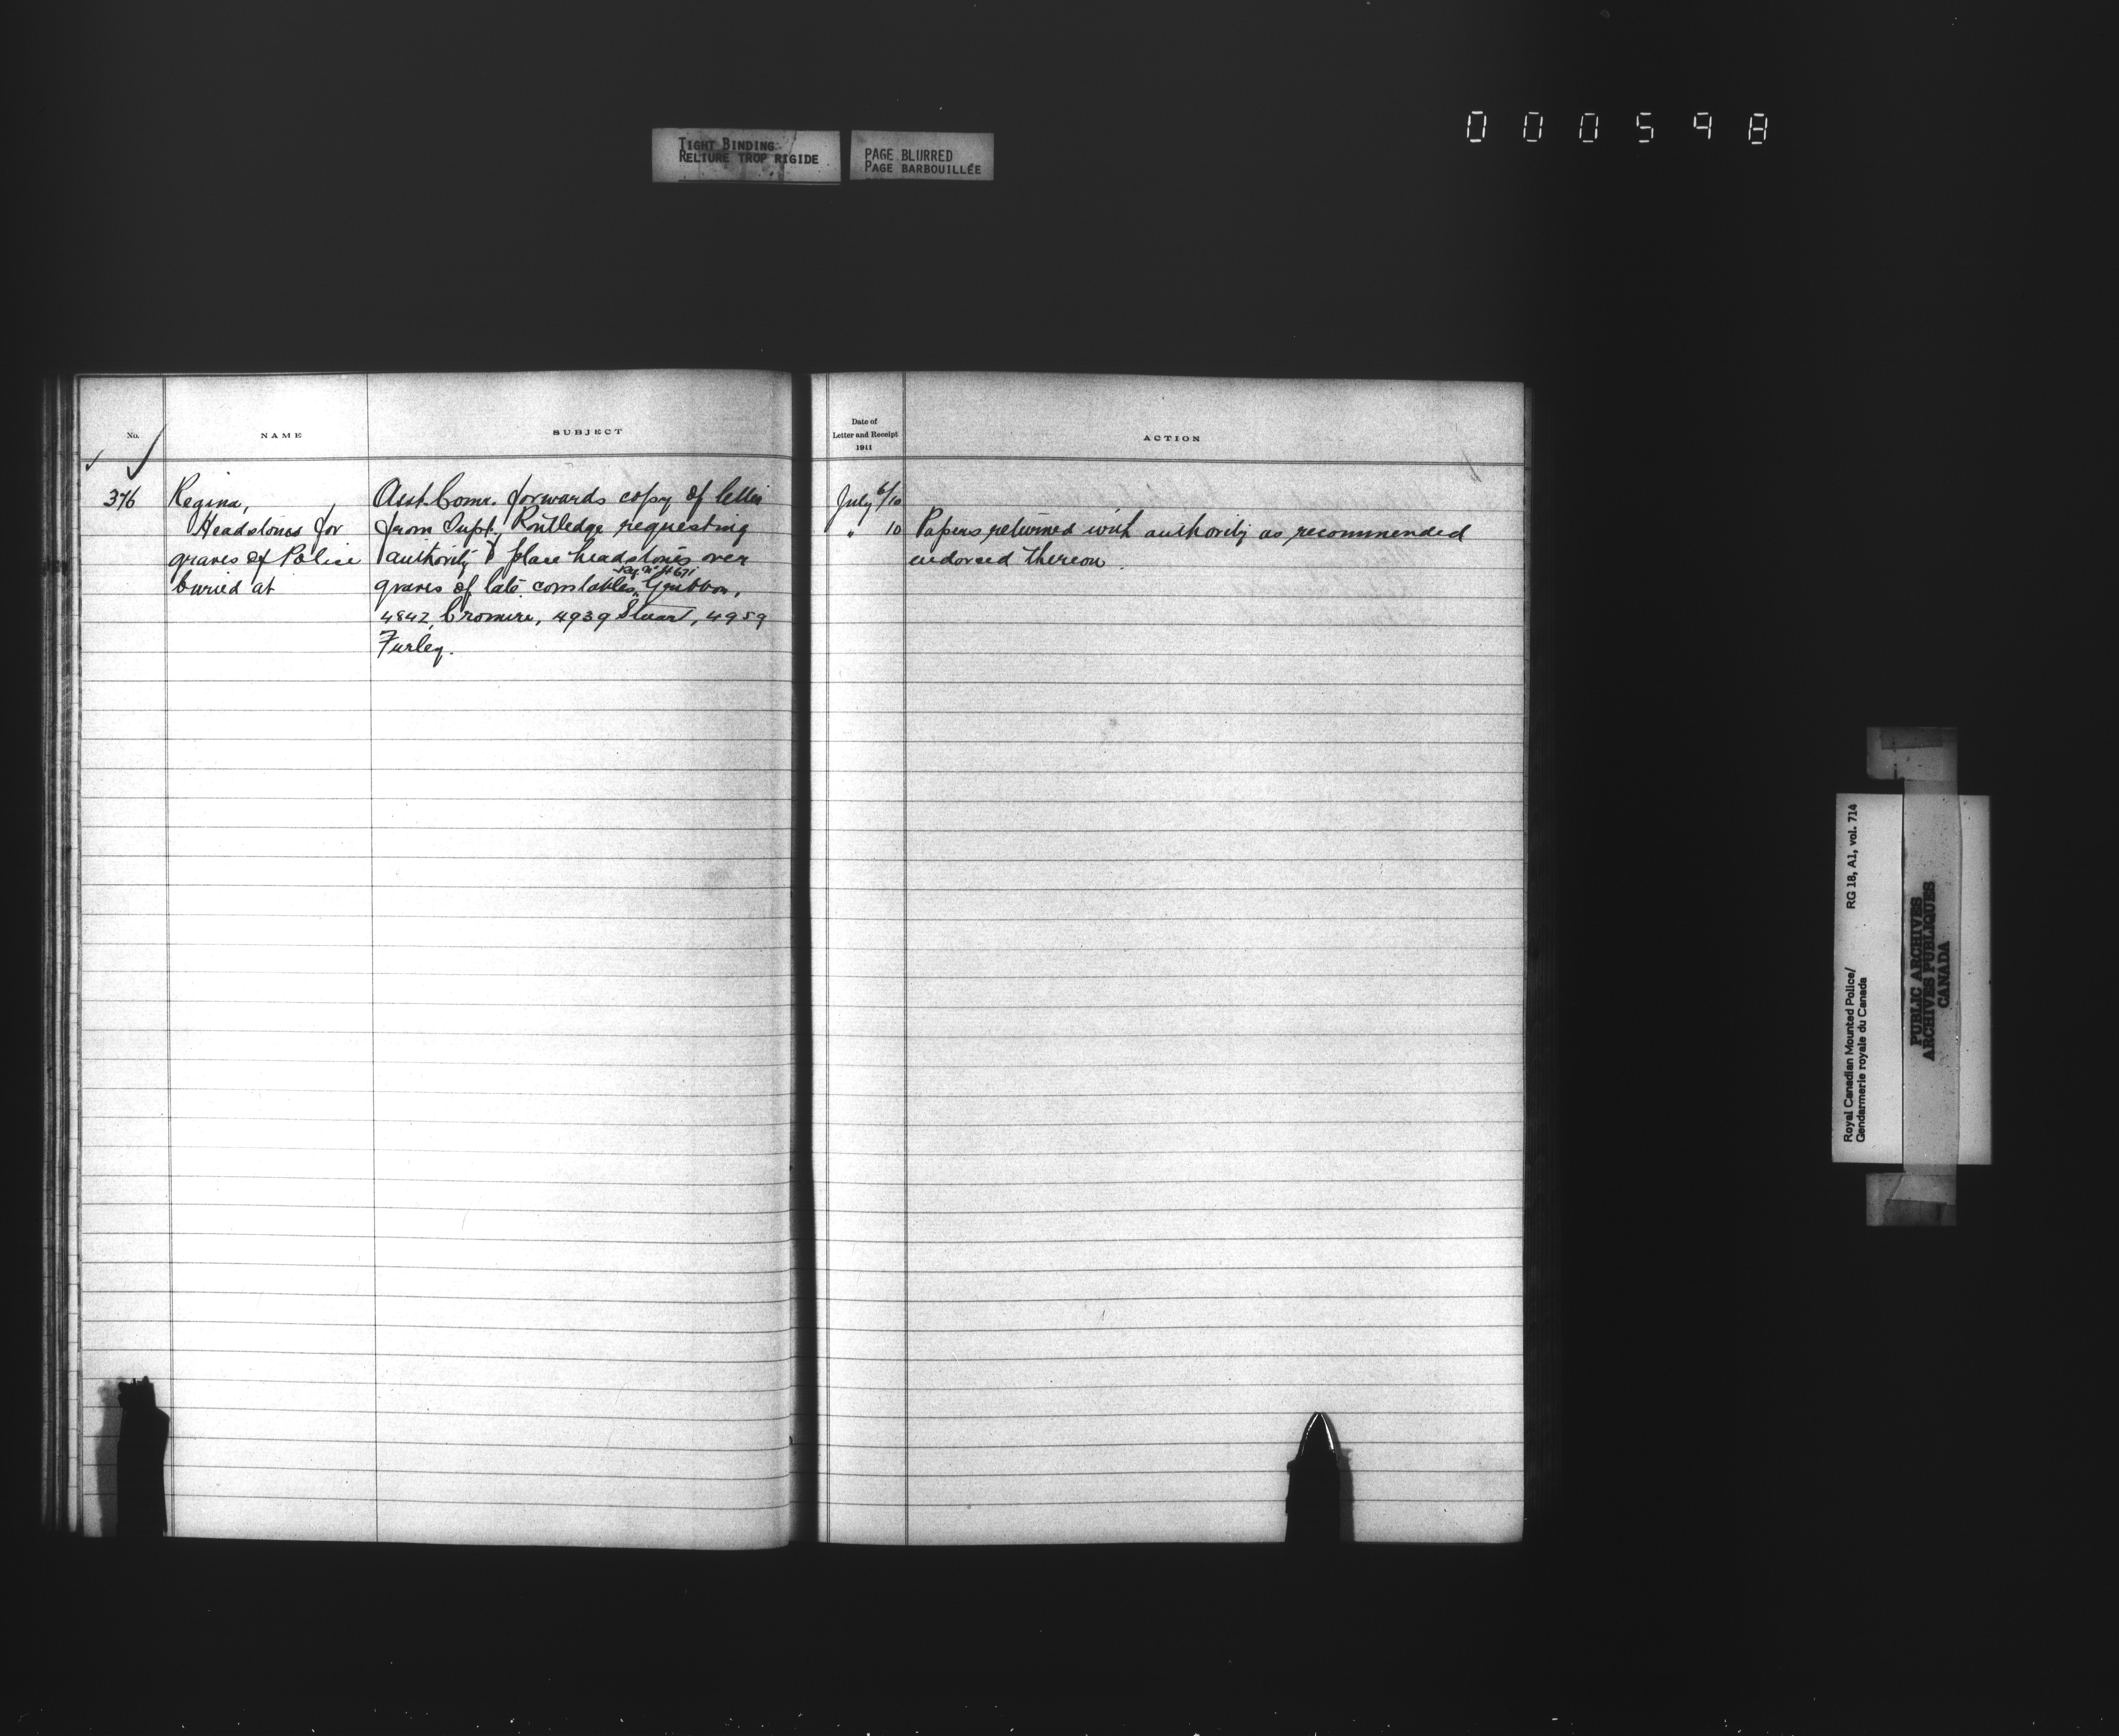 000598
TIGHT BINDING
RELIURE TROP RIGIDE
PAGE BLURRED
PAGE BARBOUILLÉE
No.
NAME
SUBJECT
376
Regina,
Headstones for
graves of Police
buried at
Asst. Comr. forwards copy of letter
from Supt. Routledge requesting
authority to place headstones over
Reg. No 4671
graves of late constables, Gribbon,
4842, Cromire, 4939 Stuart, 4959
Furley.
Date of
Letter and Receipt
1911
ACTION
July 6/10
" 10 Papers returned with authority as recommended
endorsed thereon.
Royal Canadian Mounted Police/
Gendarmerie royale du Canada
RG 18, A1, vol. 714
PUBLIC ARCHIVES
ARCHIVES PUBLIQUES
CANADA